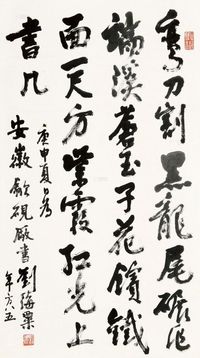 刀割黑龍尾作
端溪蒼玉子花鑌鐵
面一尺方紫霞紅光上
書几
庚申夏日為
安徽歙硯廠書 劉海粟
年方八五